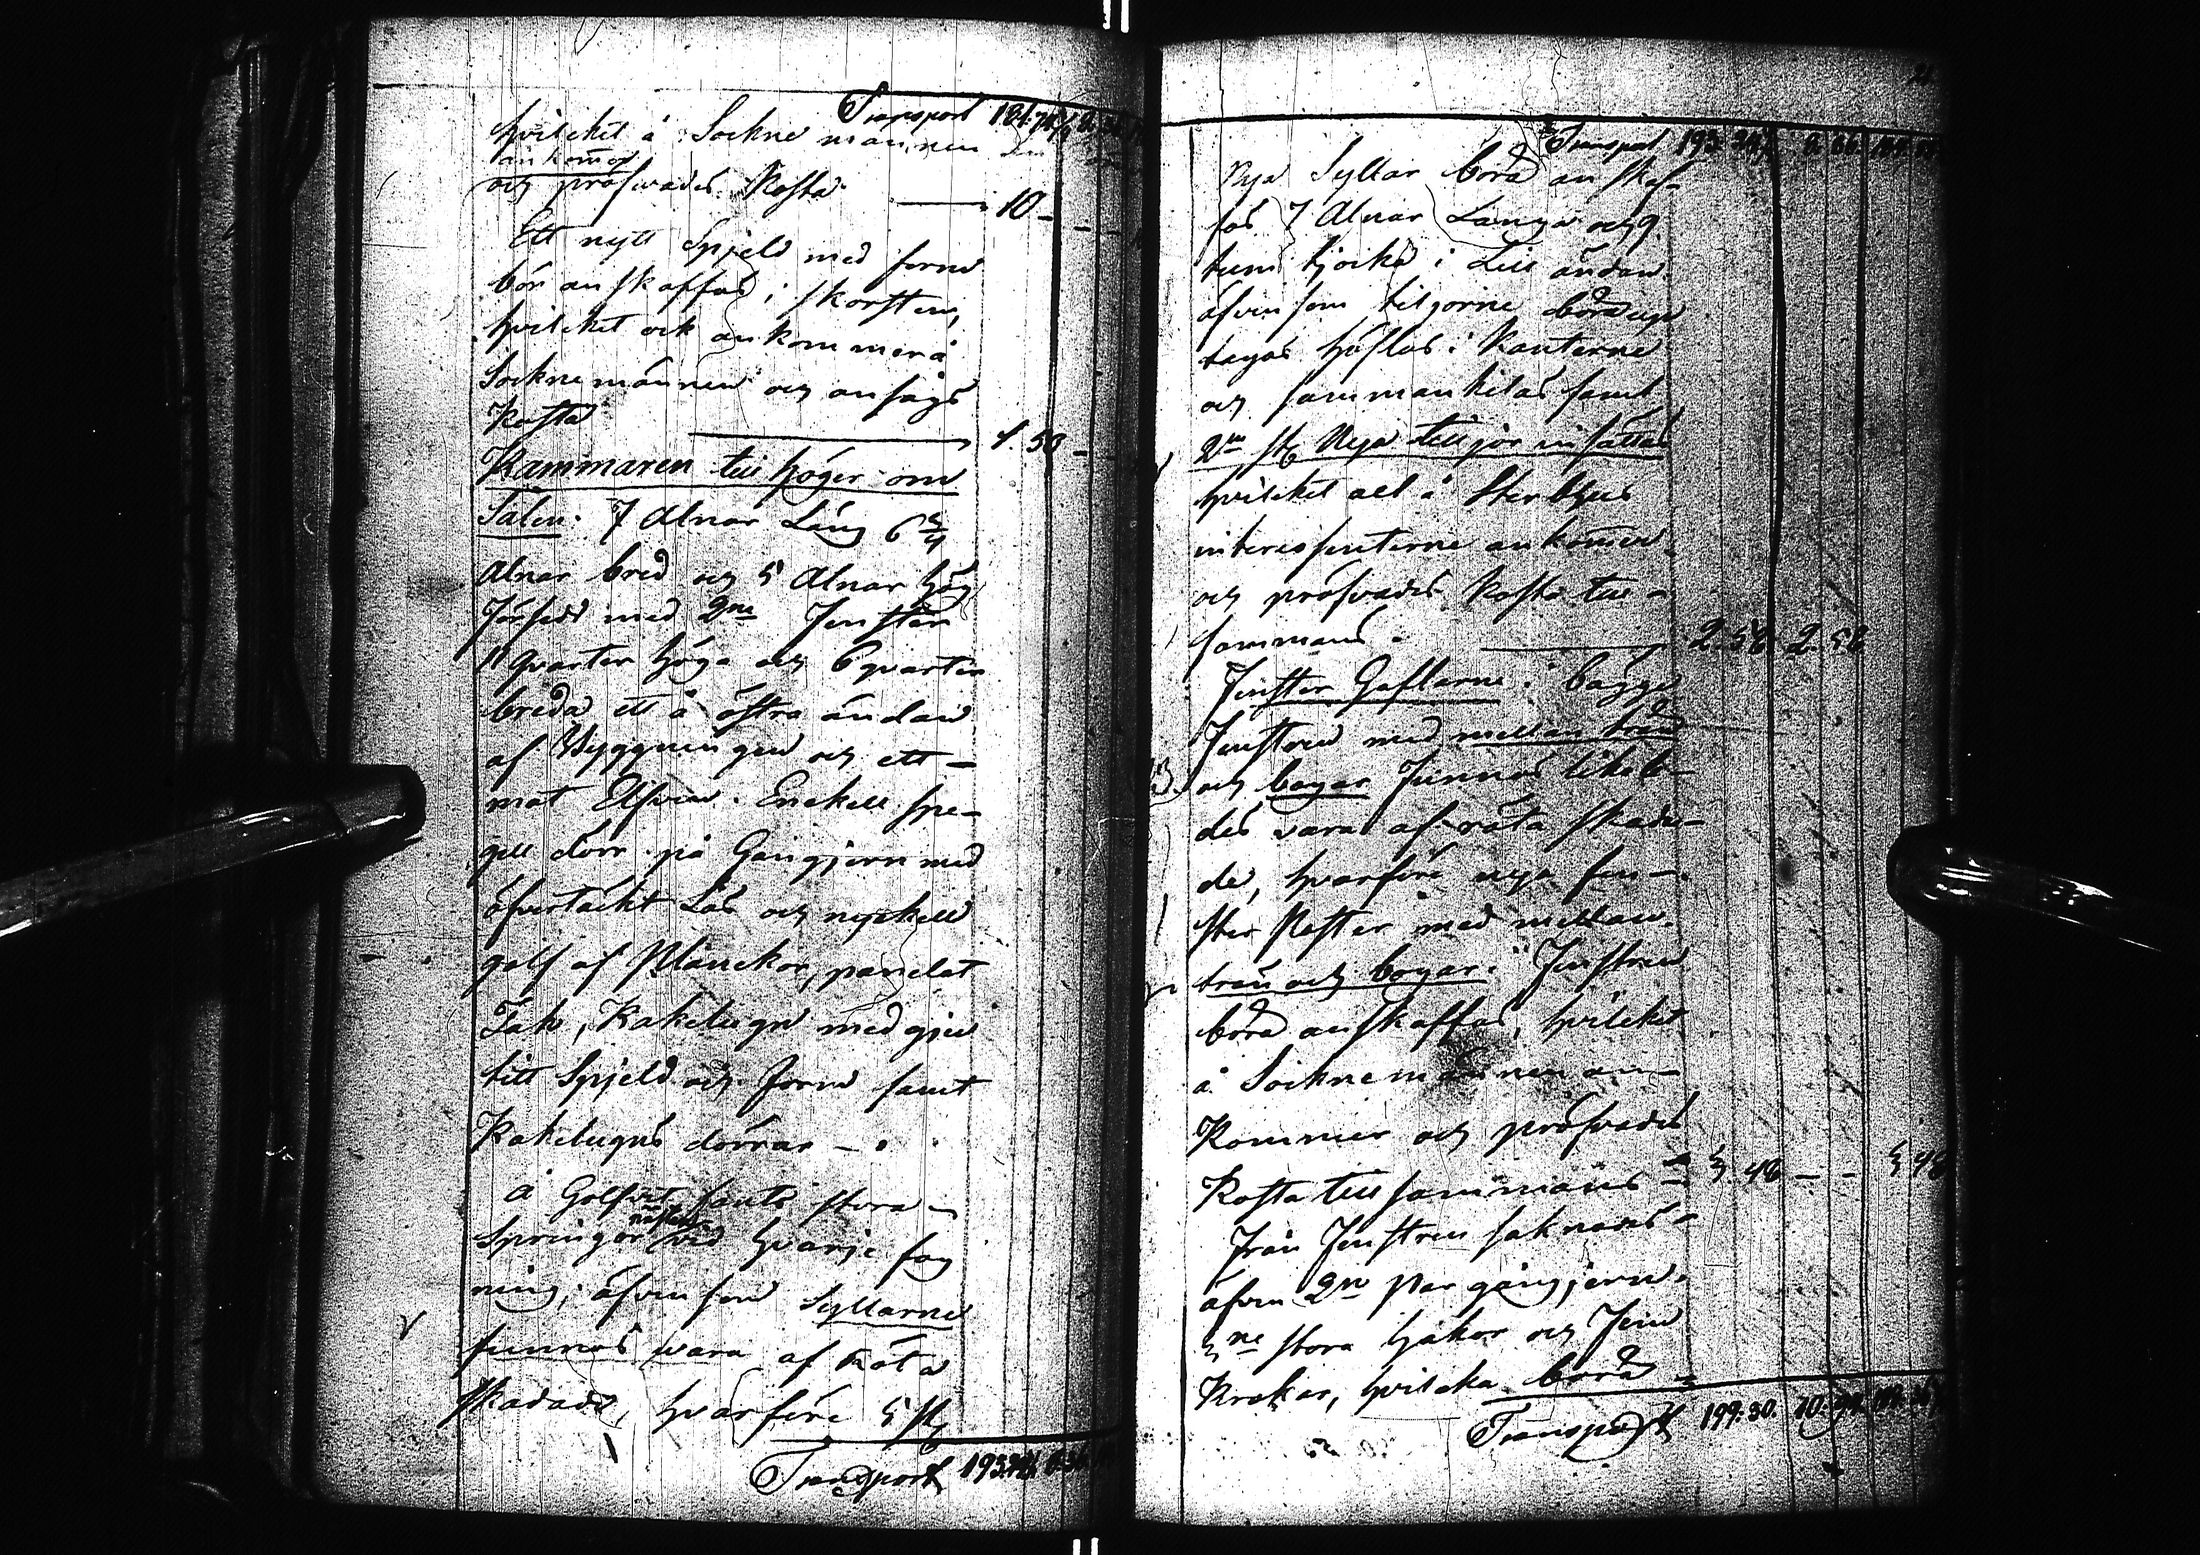 Transport 181.74½
hvilcket å Sockne männen
ankom̃er
och pröfvades Kosta 10 -
Ett nytt Spjeld med form
bör anskaffas i skorsten,
hvilcket ock ankommer å
Socknemännen och ansågs
Kosta 1.50
Kammaren till höger om
Salen. 7 Alnar Lång 6 3/4
Alnar bred och 5 Alnar hög
Försedd med 2ne Fenster
11 qvarter höga och 6 qvarter
breda ett å östra ändan
af Byggningen och ett -
mot Elfven. Enckell spe-
gell dörr på Gångjern med
öfvertäckt Lås och nyckell
golf af Planckor, panelat
Tak, Kakelugn med gju
titt Spjeld och form samt
Kakelugns dörrar -
å Golfvet fants stora -
Springor nästan vid hvarje fog
ning; äfven som Syllarne
funnos vara af Röta
skadade, hvarföre 5 st
Transport
Transport 193.
Nya Syllar böra anskaf-
fas 7 Alnar Långa och 9
tum tjocka i Lill ändan
äfven som tiljorne böra upp
tagas höflas i Kanterne
och sammankilas samt
2ne st Nya tilljor insättas
hvilcket allt å Sterbhus
interessenterne ankom̃er
och pröfvades Kosta till -
sammans - 2.58 2.58
Fenster Gaflarne i bägge
Fenstren med mellan trän
och bogar funnos likale-
des vara af röta skada-
de, hvarföre nya fen-
ster Poster med mellan
trän och bogar i Fenstren
böra anskaffas, hvilcket
å Socknemännen an-
Kommer och pröfvades
Kosta till sammans - 3.48 - - 3.48
Från Fenstren saknades -
äfven 2ne Par gångjern
3ne stora hakor och Fem
Krokar, hvilcka böra -
Transport 199.30.